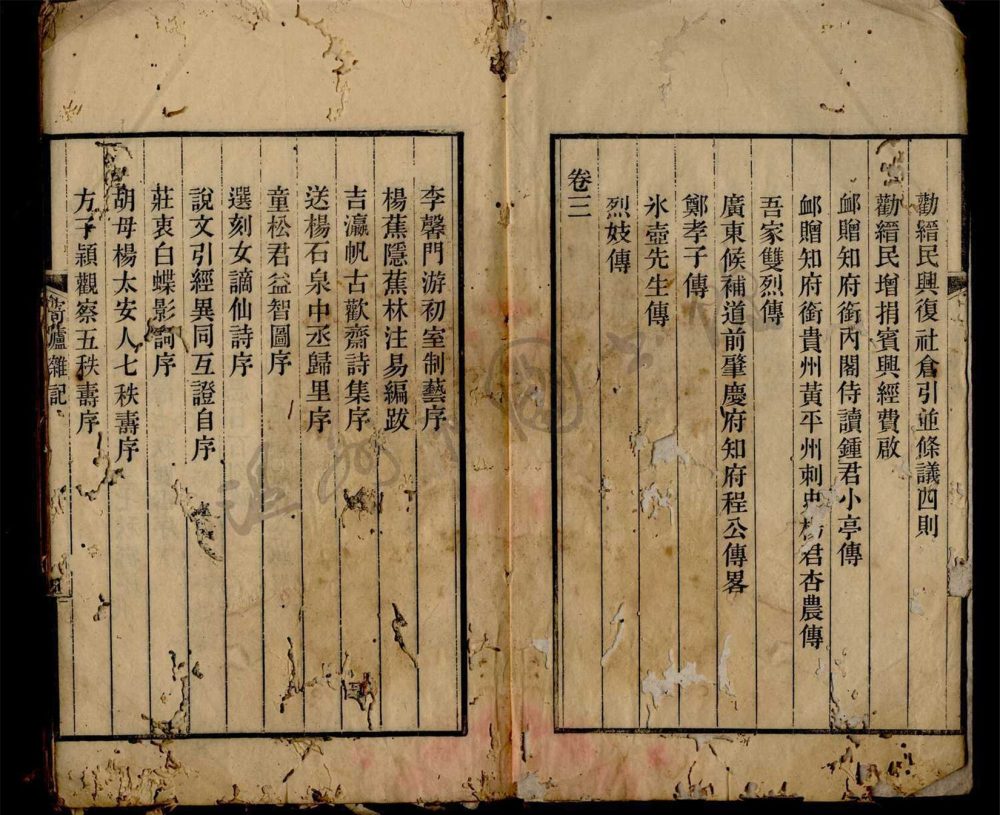 勸縉民興復社倉引並條議四則
勸縉民增捐賓興經費啟
䘏贈知府銜內閣侍讀鍾君小亭傳
䘏贈知府銜貴州黃平州刺史楊君杏農傳
吾家雙烈傳
廣東候補道前肇慶府知府程公傳畧
鄭孝子傳
氷壺先生傳
烈妓傳
卷三
李馨門游初室制藝序
楊蕉隱蕉林注易編跋
吉瀛帆古歡齋詩集序
送楊石泉中丞歸里序
童松君益智圖序
選刻女謫仙詩序
說文引經異同互證自序
莊衷白蝶影詞序
胡母楊太安人七秩壽序
方子穎觀察五秩壽序
廬雜記
溫州圖書館